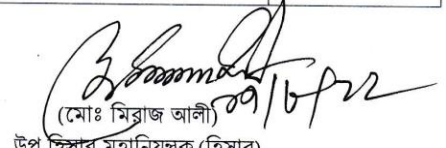 ০৭/৮/২২
(মোঃ মিরাজ আলী)
উপ হিসাব মহানিয়ন্ত্রক (হিসাব)